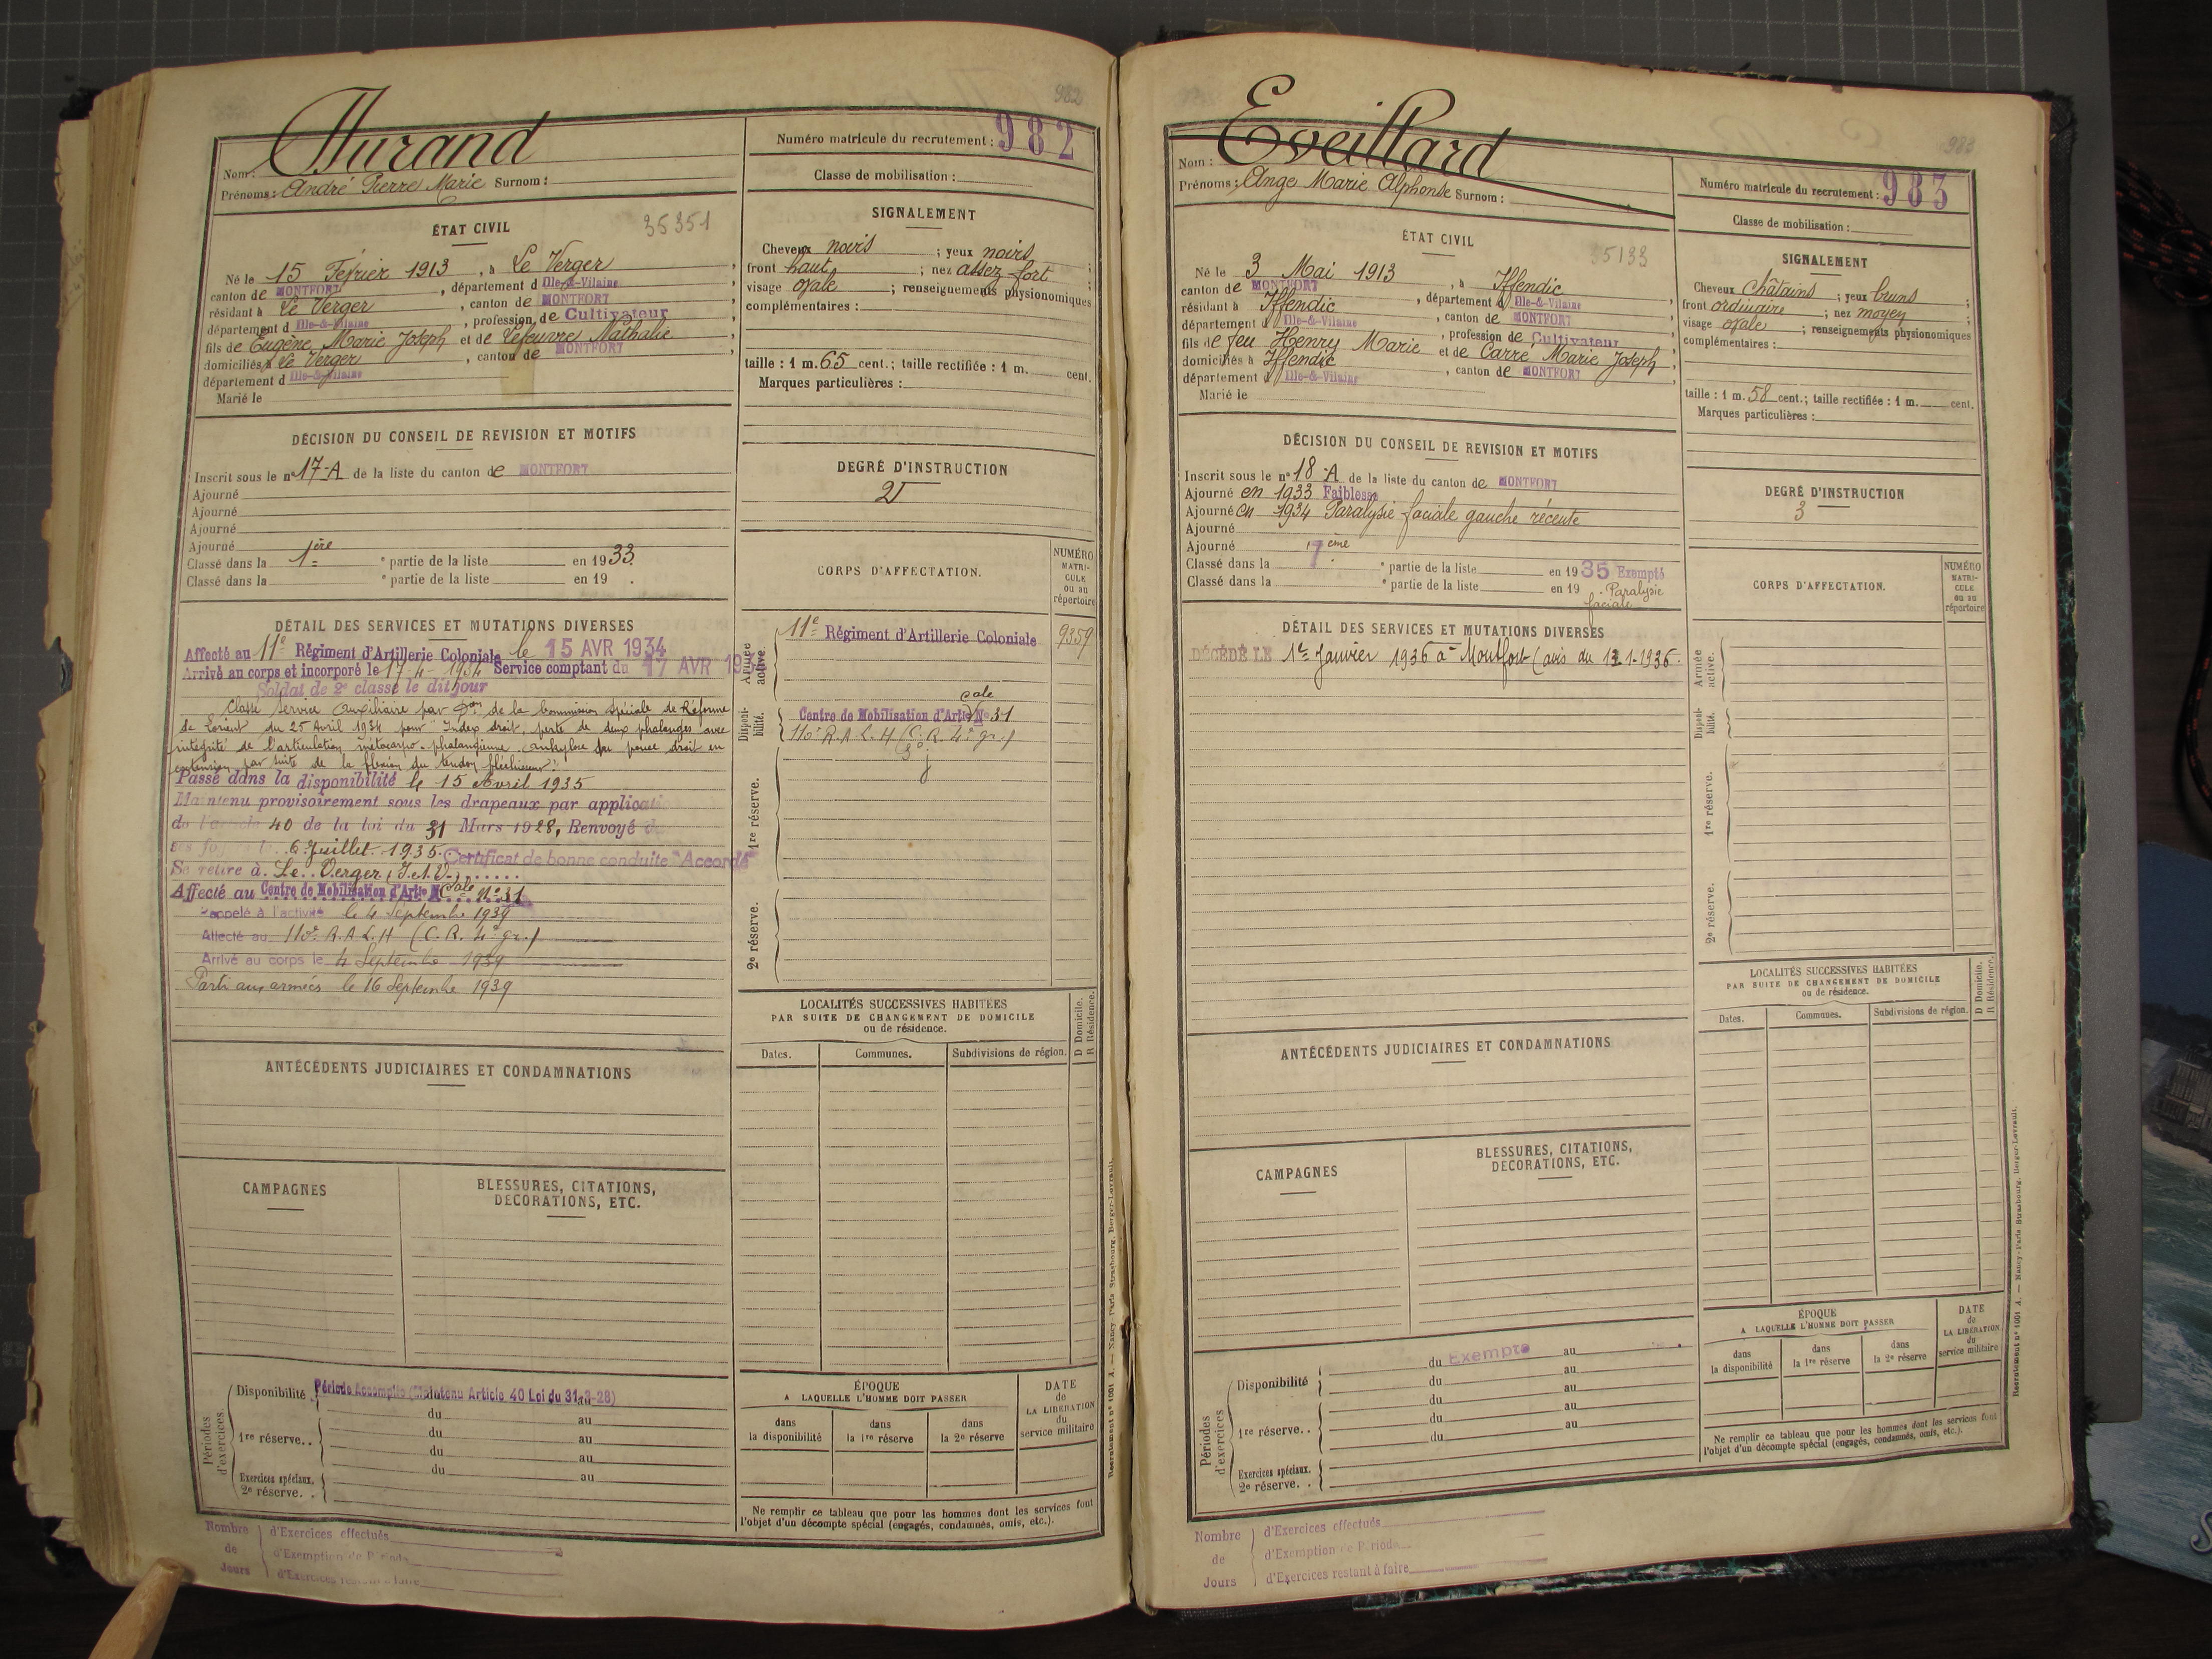 982
Durand
Nom :
Prénoms : André Pierre Marie Surnom :
Numéro matricule du recrutement : 982
Classe de mobilisation :
ÉTAT CIVIL
35351
Né le 15 Février 1913, à Le Verger,
canton de MONTFORT, département d Ille-&-Vilaine
résidant à Le Verger, canton de MONTFORT
département d Ille-&-Vilaine, profession de Cultivateur
fils de Eugène Marie Joseph et de Lefeuvre Nathalie
domiciliés à Le Verger, canton de MONTFORT,
département d Ille-&-Vilaine
Marié le
SIGNALEMENT
Cheveux noirs ; yeux noirs ;
front haut ; nez assez fort
visage ovale ; renseignements physionomiques
complémentaires :
taille : 1 m. 65 cent.; taille rectifiée : 1 m. cent.
Marques particulières :
DÉCISION DU CONSEIL DE REVISION ET MOTIFS
Inscrit sous le n° 17-A de la liste du canton de MONTFORT
Ajourné
Ajourné
Ajourné
Ajourné
Classé dans la 1ère e partie de la liste en 1933.
Classé dans la e partie de la liste en 19 .
DEGRÉ D'INSTRUCTION
DÉTAIL DES SERVICES ET MUTATIONS DIVERSES
Affecté au 11e Régiment d'Artillerie Coloniale le 15 AVR 1934
Arrivé au corps et incorporé le 17-4-1934 Service comptant du 17 AVR
Soldat de 2e classe le dit jour
Classé service auxiliaire par Don de la Commission spéciale de Réforme
de Lorient du 25 Avril 1934 pour "Index droit, perte de deux phalanges avec
intégrité de l'articulation métacarpo-phalangienne. ankylose du pouce droit en
extension par suite de la flexion du tendon fléchisseur"
Passé dans la disponibilité le 15 Avril 1935
Maintenu provisoirement sous les drapeaux par applicati
de l'article 40 de la loi du 31 Mars 1928, Renvoyé d
ses foyers le 6 Juillet 1935. Certificat de bonne conduite "Accordé"
Se retire à Le Verger (I.et.V.)
Affecté au Centre de Mobilisation d'Artie Cale N° 31
Rappelé à l'activité le 4 Septembre 1939
Affecté au 110e R.A.L.H (C.R. 4e gr.)
Arrivé au corps le 4 Septembre 1939
Parti aux armées le 16 Septembre 1939
CORPS D'AFFECTATION.
NUMÉRO MATRICULE ou au répertoire
Armée active.
11e Régiment d'Artillerie Coloniale 9359
Disponibilité.
Centre de Mobilisation d'Artie Cale N° 31
110e R.A.L.H (C.R. 4e gr.)
1re réserve.
2e réserve.
LOCALITÉS SUCCESSIVES HABITÉES
PAR SUITE DE CHANGEMENT DE DOMICILE
ou de résidence.
D Domicile.
R Résidence.
Dates. Communes. Subdivisions de région.
ANTÉCÉDENTS JUDICIAIRES ET CONDAMNATIONS
CAMPAGNES
BLESSURES, CITATIONS,
DÉCORATIONS, ETC.
Périodes d'exercices
Disponibilité Période Accomplie (Maintenu Article 40 Loi du 31-3-28)
au
du au
1re réserve.. du au
du au
du au
Exercices spéciaux.
2e réserve. .
ÉPOQUE
A LAQUELLE L'HOMME DOIT PASSER
dans la disponibilité
dans la 1re réserve
dans la 2e réserve
DATE
de
LA LIBÉRATION
du
service militaire
Ne remplir ce tableau que pour les hommes dont les services font
l'objet d'un décompte spécial (engagés, condamnés, omis, etc.).
Nombre de Jours
d'Exercices effectués
d'Exemption de Période
d'Exercices restant à faire
Recrutement n° 1001 A. — Nancy-Paris Strasbourg, Berger-Levrault.
983
Eveillard
Nom :
Prénoms : Ange Marie Alphonse Surnom :
Numéro matricule du recrutement : 983
Classe de mobilisation :
ÉTAT CIVIL
35133
Né le 3 Mai 1913, à Iffendic
canton de MONTFORT, département d Ille-&-Vilaine
résidant à Iffendic, canton de MONTFORT
département d Ille-&-Vilaine, profession de Cultivateur
fils de feu Henry Marie et de Carré Marie Joseph
domiciliés à Iffendic, canton de MONTFORT
département d Ille-&-Vilaine
Marié le
SIGNALEMENT
Cheveux châtains ; yeux bruns ;
front ordinaire ; nez moyen ;
visage ovale ; renseignements physionomiques
complémentaires :
taille : 1 m. 58 cent.; taille rectifiée : 1 m. cent.
Marques particulières :
DÉCISION DU CONSEIL DE REVISION ET MOTIFS
Inscrit sous le n° 18-A de la liste du canton de MONTFORT
Ajourné en 1933 Faiblesse
Ajourné en 1934 Paralysie faciale gauche récente
Ajourné
Ajourné
Classé dans la ème e partie de la liste en 1935 Exempté
Classé dans la e partie de la liste en 19 . Paralysie
faciale
DEGRÉ D'INSTRUCTION
3
DÉTAIL DES SERVICES ET MUTATIONS DIVERSES
DÉCÉDÉ LE 1er Janvier 1936 à Montfort (avis du 13-1-1936.
CORPS D'AFFECTATION.
NUMÉRO MATRICULE ou au répertoire
Armée active.
Disponibilité.
1re réserve.
2e réserve.
LOCALITÉS SUCCESSIVES HABITÉES
PAR SUITE DE CHANGEMENT DE DOMICILE
ou de résidence.
D Domicile.
R Résidence.
Dates. Communes. Subdivisions de région.
ANTÉCÉDENTS JUDICIAIRES ET CONDAMNATIONS
CAMPAGNES
BLESSURES, CITATIONS,
DÉCORATIONS, ETC.
Périodes d'exercices
du Exempté au
Disponibilité du au
du au
1re réserve.. du au
du au
Exercices spéciaux.
2e réserve. .
ÉPOQUE
A LAQUELLE L'HOMME DOIT PASSER
dans la disponibilité
dans la 1re réserve
dans la 2e réserve
DATE
de
LA LIBÉRATION
du
service militaire
Ne remplir ce tableau que pour les hommes dont les services font
l'objet d'un décompte spécial (engagés, condamnés, omis, etc.).
Nombre de Jours
d'Exercices effectués
d'Exemption de Période
d'Exercices restant à faire
Recrutement n° 1001 A. — Nancy-Paris Strasbourg, Berger-Levrault.